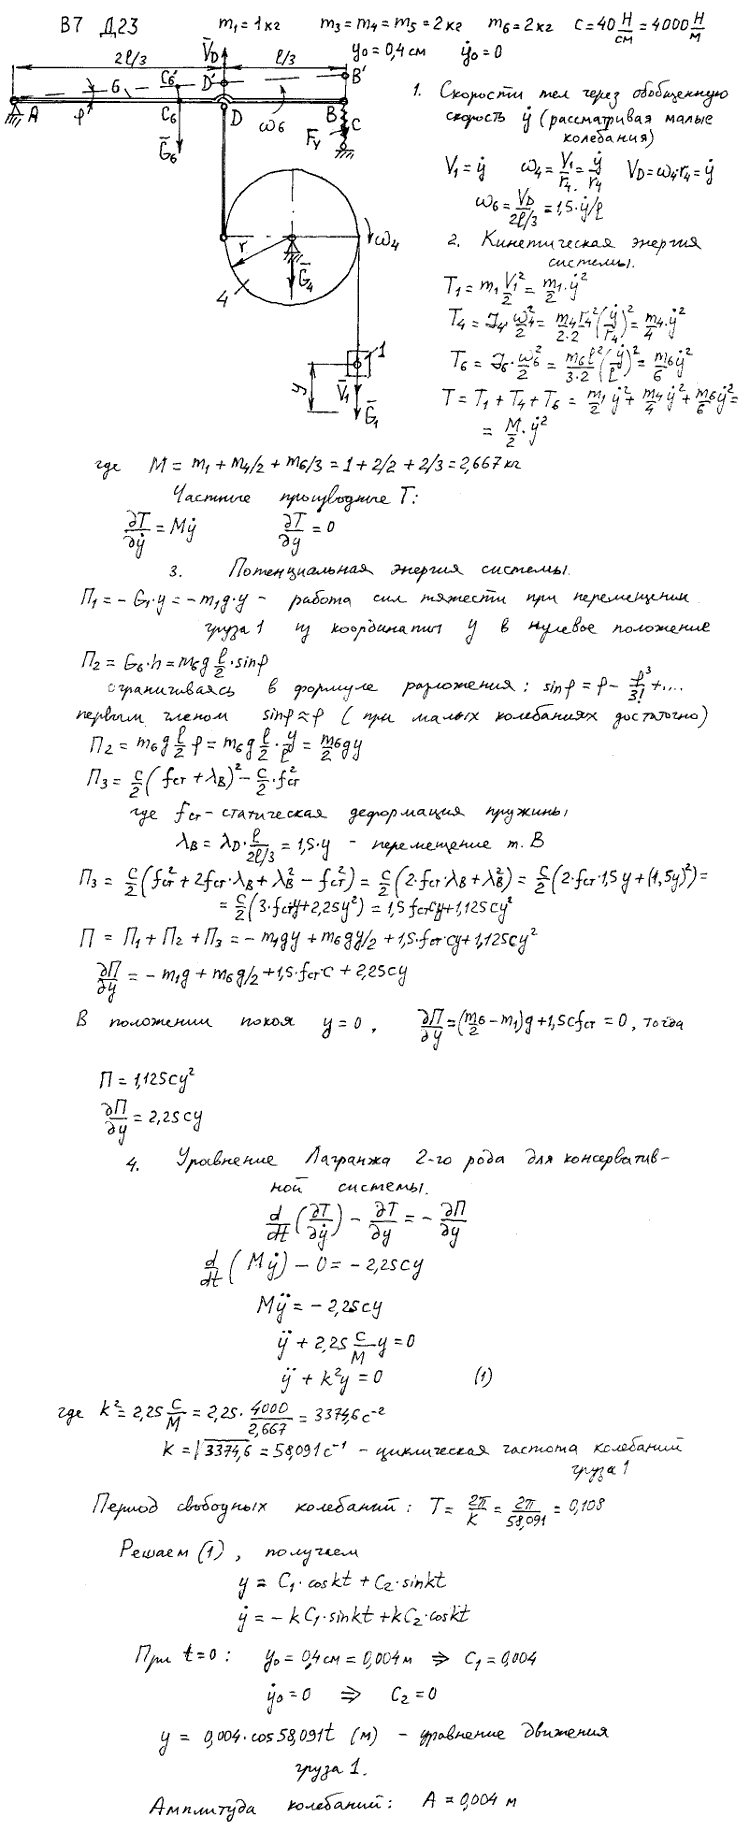 В7 Д23 m₁=1кг m₃=m₄=m₅=2кг m₆=2кг c=40 Н/см=4000 Н/м
y₀=0,4см ẏ₀=0
2l/3 V̄_D l/3
C₆' D' B'
A φ 6 C₆ D ω₆ B C
Ḡ₆ F_y
r ω₄
4 Ḡ₄
1
y V̄₁ Ḡ₁
1. Скорости тел через обобщенную
скорость ẏ (рассматривая малые
колебания)
V₁=ẏ ω₄=V₁/r₄=ẏ/r₄ V_D=ω₄·r₄=ẏ
ω₆=V_D/(2l/3)=1,5·ẏ/l
2. Кинетическая энергия
системы.
T₁=m₁V₁²/2=m₁/2·ẏ²
T₄=J₄·ω₄²/2=m₄r₄²/(2·2)(ẏ/r₄)²=m₄/4·ẏ²
T₆=J₆·ω₆²/2=m₆l²/(3·2)(ẏ/l)²=m₆/6ẏ²
T=T₁+T₄+T₆=m₁/2ẏ²+m₄/4ẏ²+m₆/6ẏ²=
=M/2·ẏ²
где M=m₁+m₄/2+m₆/3=1+2/2+2/3=2,667кг
Частные производные T:
∂T/∂ẏ=Mẏ ∂T/∂y=0
3. Потенциальная энергия системы.
П₁=-G₁·y=-m₁g·y - работа сил тяжести при перемещении
груза 1 из координаты y в нулевое положение
П₂=G₆·h=m₆g l/2·sinφ
ограничиваясь в формуле разложения: sinφ=φ-φ³/3!+....
первым членом sinφ≈φ (при малых колебаниях достаточно)
П₂=m₆g l/2 φ=m₆g l/2·y/l=m₆/2gy
П₃=c/2(fст+λ_B)²-c/2·fст²
где fст-статическая деформация пружины,
λ_B=λ_D·l/(2l/3)=1,5·y - перемещение т. В
П₃=c/2(fст²+2fст·λ_B+λ_B²-fст²)=c/2(2·fст·λ_B+λ_B²)=c/2(2·fст·1,5y+(1,5y)²)=
=c/2(3·fсту+2,25y²)=1,5fстcy+1,125cy²
П=П₁+П₂+П₃=-m₁gy+m₆gy/2+1,5·fст·cy+1,125cy²
∂П/∂y=-m₁g+m₆g/2+1,5·fст·c+2,25cy
В положении покоя y=0, ∂П/∂y=(m₆/2-m₁)g+1,5cfст=0, тогда
П=1,125cy²
∂П/∂y=2,25cy
4. Уравнение Лагранжа 2-го рода для консерватив-
ной системы.
d/dt(∂T/∂ẏ)-∂T/∂y=-∂П/∂y
d/dt(Mẏ)-0=-2,25cy
Mÿ=-2,25cy
ÿ+2,25 c/M y=0
ÿ+k²y=0 (1)
где k²=2,25 c/M=2,25·4000/2,667=3374,6с⁻²
k=√3374,6=58,091с⁻¹ - циклическая частота колебаний
груза 1
Период свободных колебаний: T=2π/k=2π/58,091=0,108
Решаем (1), получаем
y=C₁·coskt+C₂·sinkt
ẏ=-kC₁·sinkt+kC₂·coskt
При t=0: y₀=0,4см=0,004м ⇒ C₁=0,004
ẏ₀=0 ⇒ C₂=0
y=0,004·cos58,091t (м) - уравнение движения
груза 1.
Амплитуда колебаний: A=0,004 м